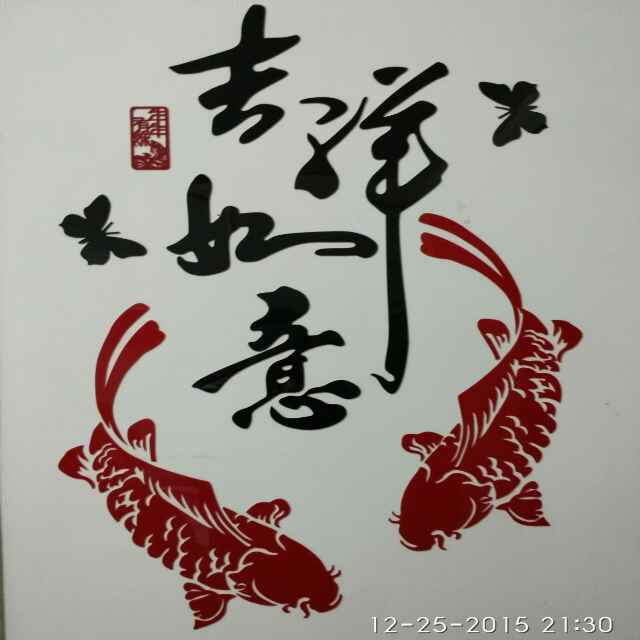 吉祥
如
意
年年有馀
12-25-2015 21:30